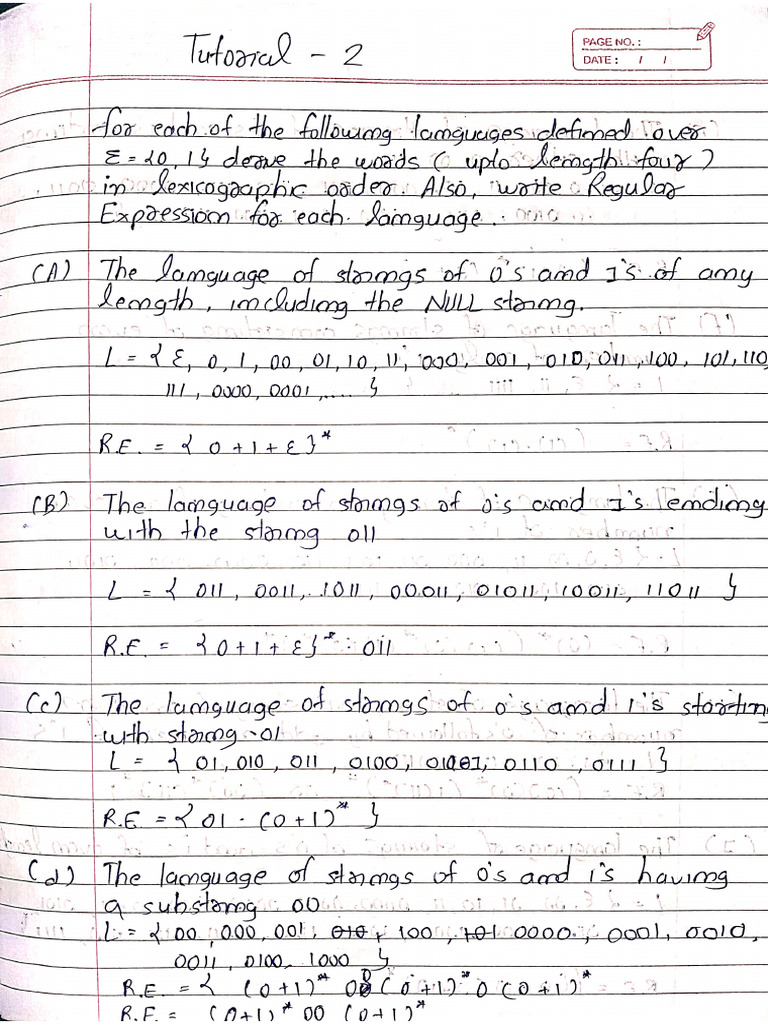 Tutorial - 2
PAGE NO.:
DATE: / /
for each of the following languages defined over
Σ = {0, 1} derive the words (upto length four)
in lexicographic order. Also, write Regular
Expression for each language.
(A) The language of strings of 0's and 1's of any
length, including the NULL string.
L = { ε, 0, 1, 00, 01, 10, 11, 000, 001, 010, 011, 100, 101, 110,
111, 0000, 0001, .... }
R.E. = { 0 + 1 + ε }*
(B) The language of strings of 0's and 1's ending
with the string 011
L = { 011, 0011, 1011, 00011, 01011, 10011, 11011 }
R.E. = { 0 + 1 + ε }* · 011
(c) The language of strings of 0's and 1's starting
with string 01
L = { 01, 010, 011, 0100, 0101, 0110, 0111 }
R.E. = { 01 · (0+1)* }
(d) The language of strings of 0's and 1's having
a substring 00
L = { 00, 000, 001, 010, 100, 101 0000, 0001, 0010,
0011, 0100, 1000 }
R.E. = { (0+1)* 0 (0+1)* 0 (0+1)*
R.E. = (0+1)* 00 (0+1)*